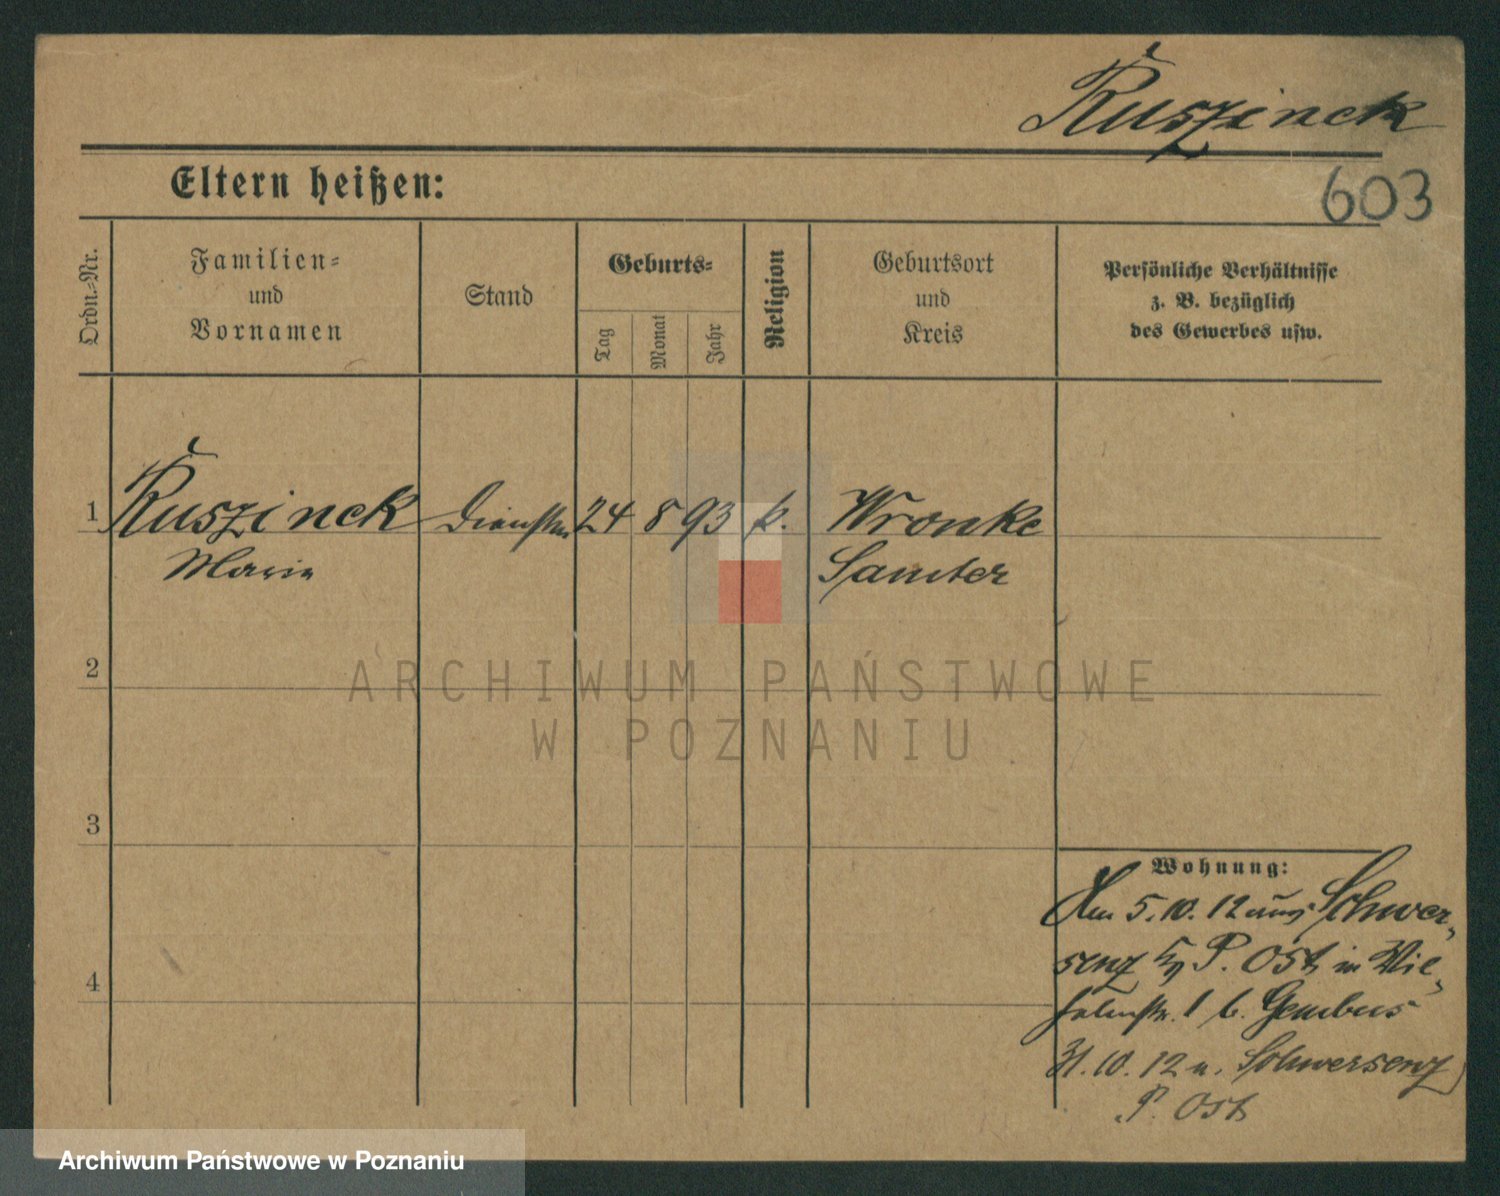 Ruszinck
Eltern heißen:
603
Ordn.-Nr.
Familien-
und
Vornamen
Stand
Geburts-
Tag
Monat
Jahr
Religion
Geburtsort
und
Kreis
Persönliche Verhältnisse
z. B. bezüglich
des Gewerbes usw.
1 Ruszinck 24 8 93 k. Wronke
Marie Samter
2
3
4
Wohnung:
Am 5.10.12 aus Schwer-
senz Kr P. Ost in
1 b. Gembus
31.10.12 n. Schwersenz
P. Ost
ARCHIWUM PAŃSTWOWE
W POZNANIU
Archiwum Państwowe w Poznaniu